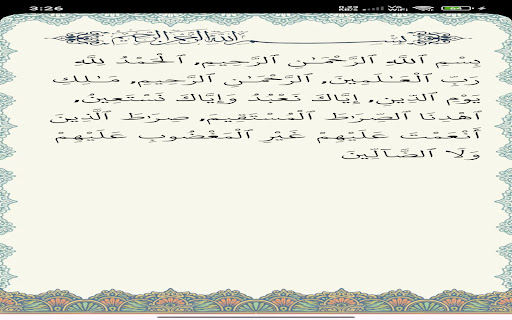 3:26
بِسْمِ ٱللَّهِ ٱلرَّحْمَٰنِ ٱلرَّحِيمِ
بِسْمِ ٱللَّهِ ٱلرَّحْمَٰنِ ٱلرَّحِيمِ. ٱلْحَمْدُ لِلَّهِ
رَبِّ ٱلْعَٰلَمِينَ. ٱلرَّحْمَٰنِ ٱلرَّحِيمِ. مَٰلِكِ
يَوْمِ ٱلدِّينِ. إِيَّاكَ نَعْبُدُ وَإِيَّاكَ نَسْتَعِينُ.
ٱهْدِنَا ٱلصِّرَٰطَ ٱلْمُسْتَقِيمَ. صِرَٰطَ ٱلَّذِينَ
أَنْعَمْتَ عَلَيْهِمْ غَيْرِ ٱلْمَغْضُوبِ عَلَيْهِمْ
وَلَا ٱلضَّآلِّينَ